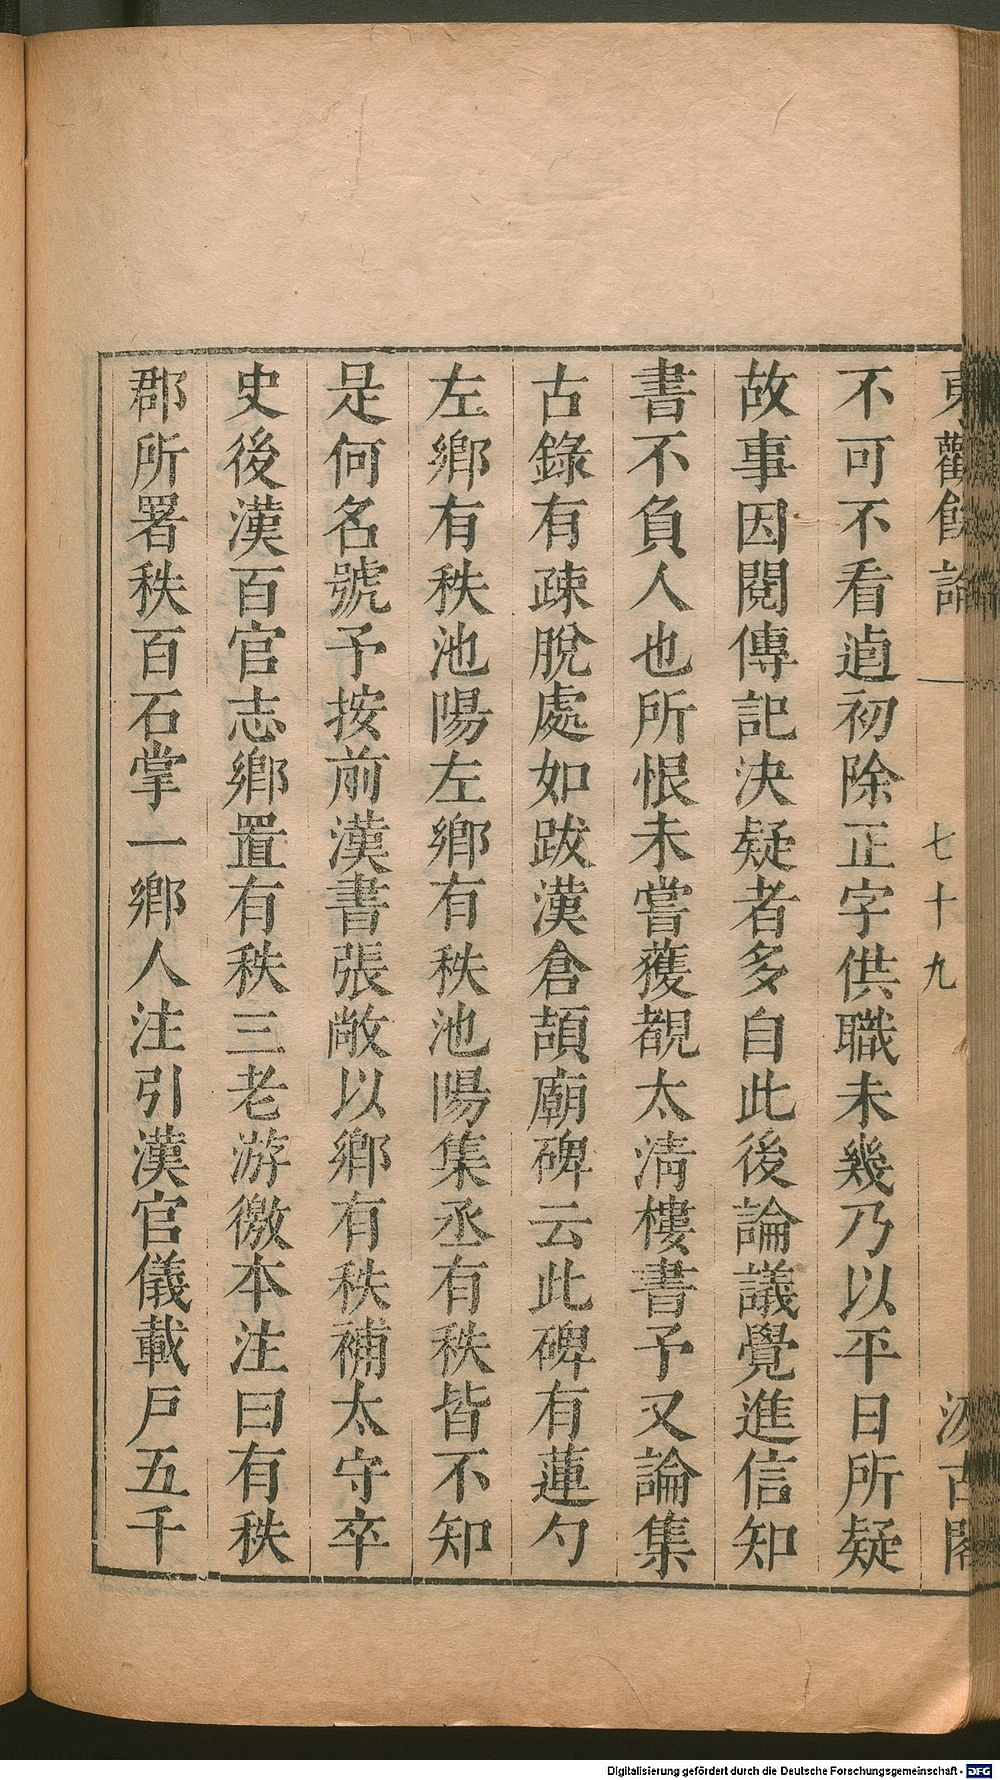 東觀餘論
七十九
汲古閣
不可不看逌初除正字供職未幾乃以平日所疑
故事因閱傳記決疑者多自此後論議覺進信知
書不負人也所恨未嘗獲覩太淸樓書予又論集
古錄有疎脫處如跋漢倉頡廟碑云此碑有蓮勺
左鄕有秩池陽左鄕有秩池陽集丞有秩皆不知
是何名號予按前漢書張敞以鄕有秩補太守卒
史後漢百官志鄕置有秩三老游徼本注曰有秩
郡所署秩百石掌一鄕人注引漢官儀載戸五千
Digitalisierung gefördert durch die Deutsche Forschungsgemeinschaft - DFG